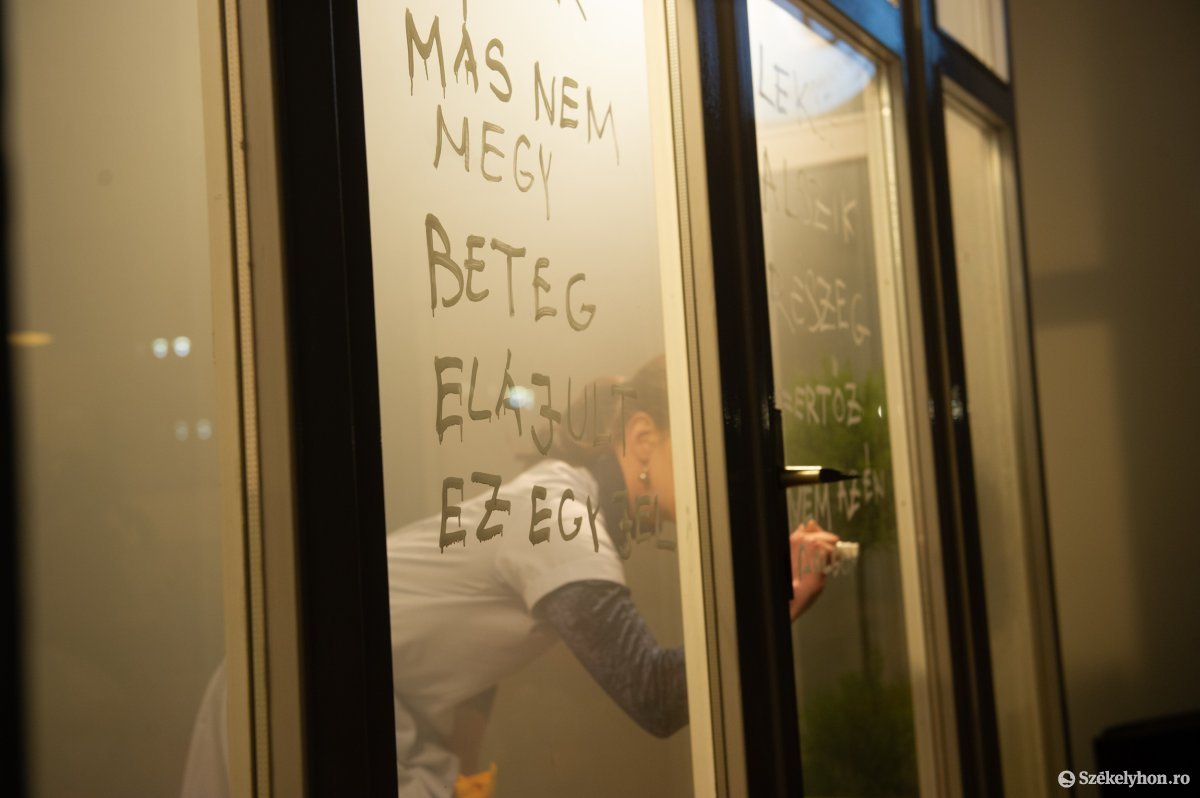 MÁS NEM
MEGY
BETEG
ELÁJULT
EZ EGY JEL
LEK
ALSZIK
RÉSZEG
FERTŐZ
NEM AZ ÉN
Székelyhon.ro